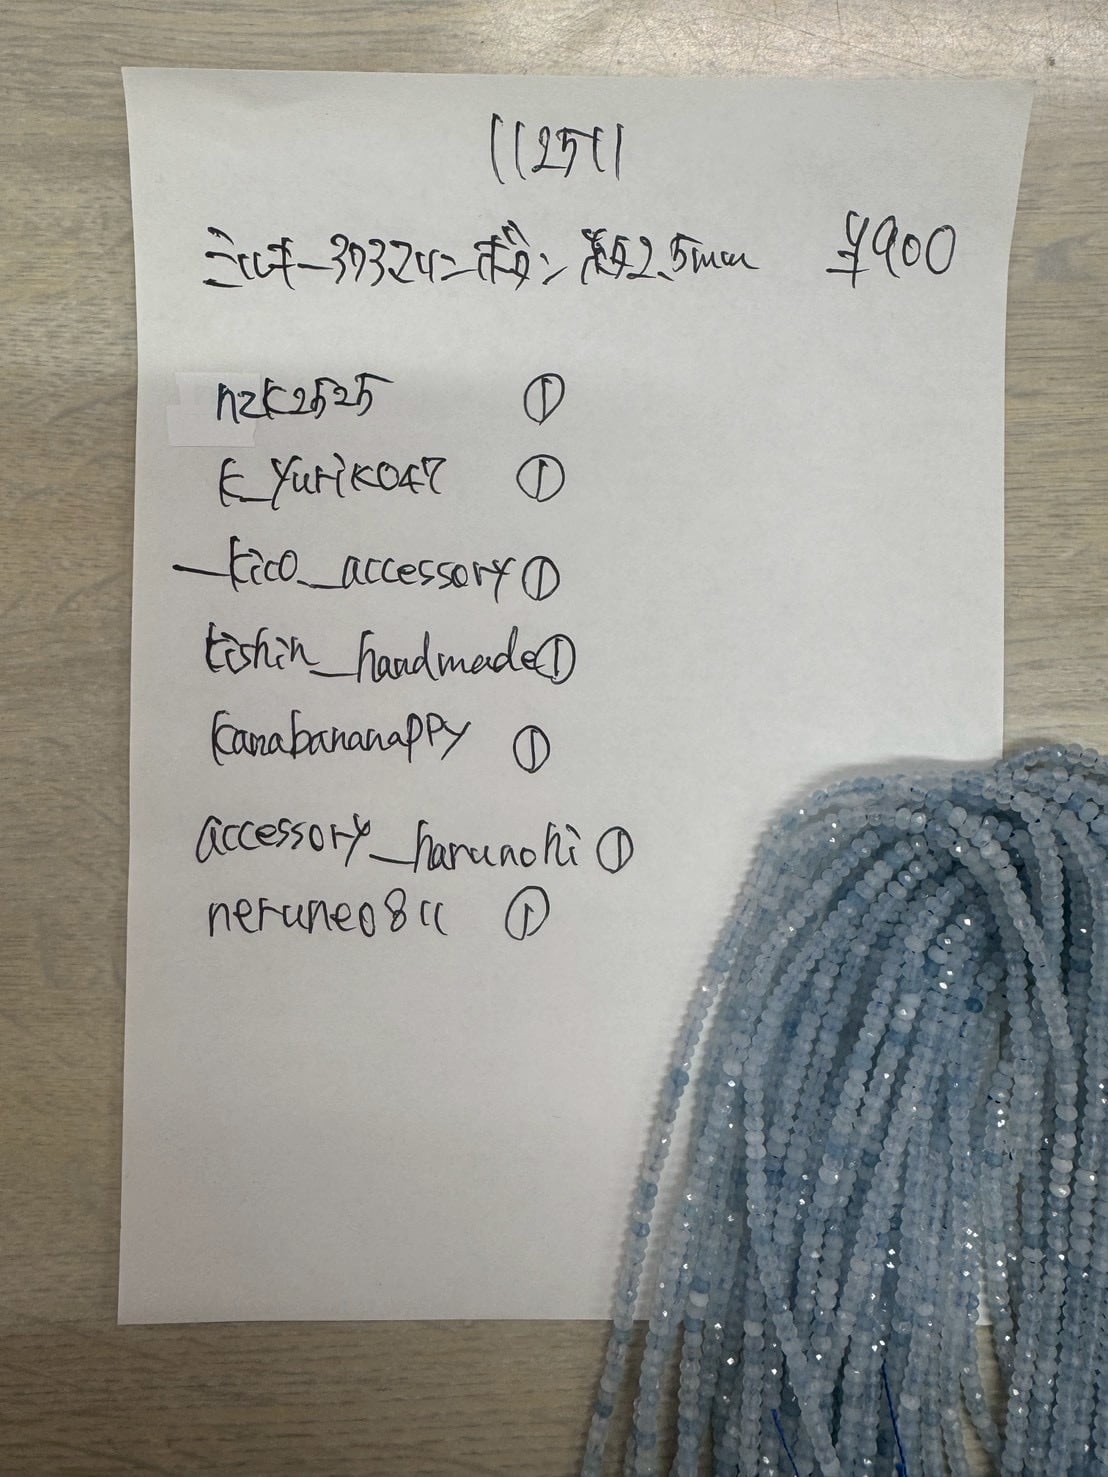 112511
ミルキーアクアマリンボタン約2.5mm ¥900
nzk2525 ①
k_yuriko47 ①
_kico_accessory ①
kishin_handmade ①
kanabananappy ①
accessory_harunohi ①
nerune0811 ①